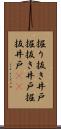 掘り抜き井戸
掘抜き井戸掘
抜井戸